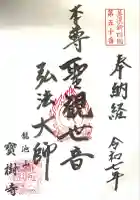 奉納経
令和七年
本尊
聖観世音
弘法大師
龍池山
寶樹寺